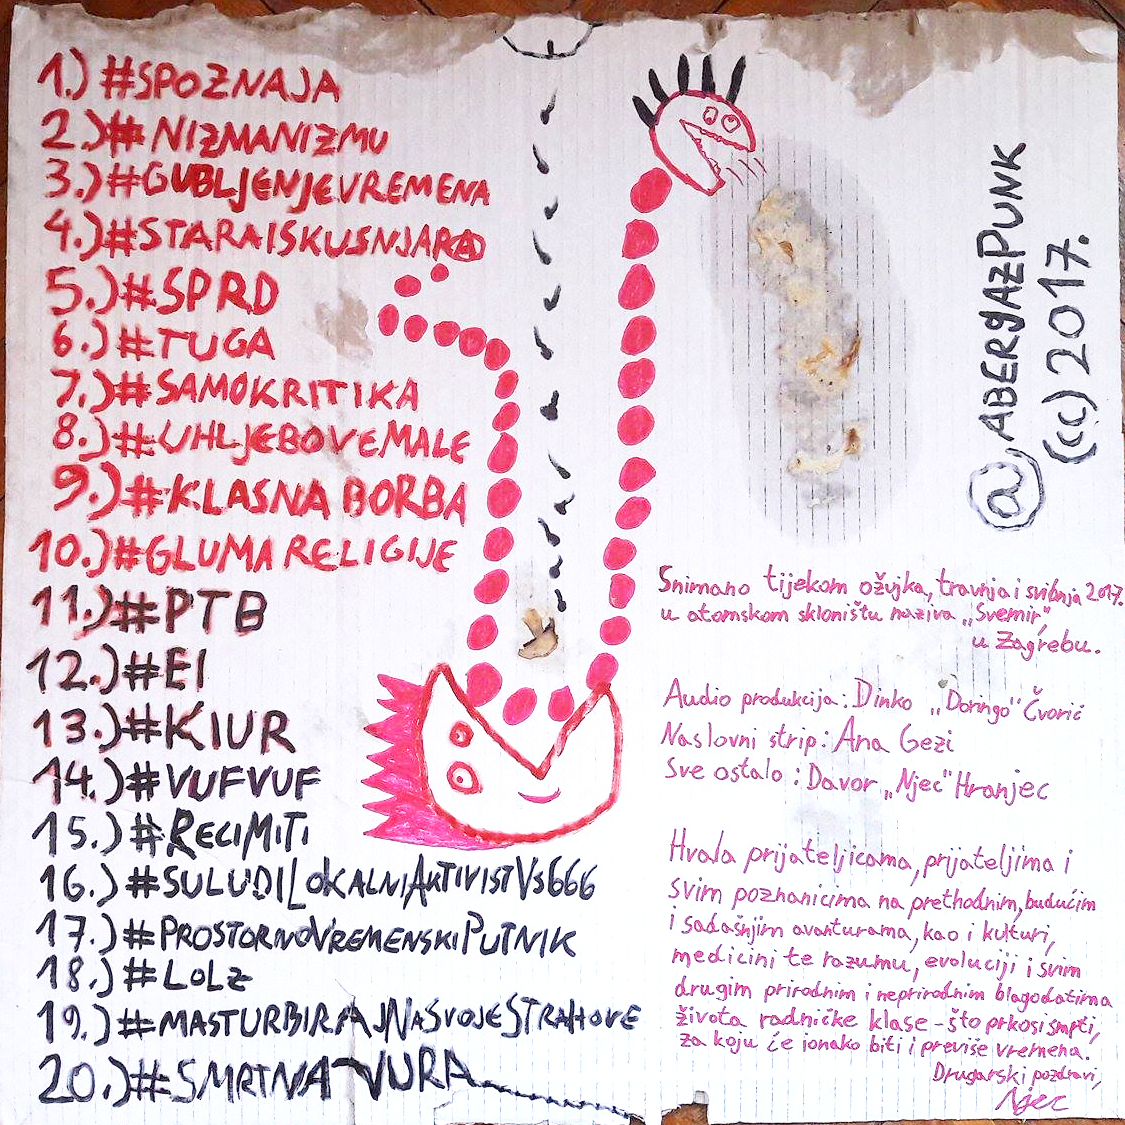 1.) #SPOZNAJA
2.) #NIZMANIZMU
3.) #GUBLJENJEVREMENA
4.) #STARAISKUSNJARA
5.) #SPRD
6.) #TUGA
7.) #SAMOKRITIKA
8.) #UHLJEBOVEMALE
9.) #KLASNA BORBA
10.) #GLUMA RELIGIJE
11.) #PTB
12.) #EI
13.) #KIUR
14.) #VUFVUF
15.) #RECIMITI
16.) #SULUDILOKALNIAKTIVISTVS666
17.) #PROSTORNOVREMENSKIPUTNIK
18.) #LOLZ
19.) #MASTURBIRAJNASVOJESTRAHOVE
20.) #SMRTNA VURA
@ABERGAZPUNK
(cc) 2017.
Snimano tijekom ožujka, travnja i svibnja 2017.
u atomskom skloništu naziva „Svemir”,
u Zagrebu.
Audio produkcija: Dinko „Doringo” Čvorić
Naslovni strip: Ana Gezi
Sve ostalo: Davor „Njec” Hranjec
Hvala prijateljicama, prijateljima i
svim poznanicima na prethodnim, budućim
i sadašnjim avanturama, kao i kulturi,
medicini te razumu, evoluciji i svim
drugim prirodnim i neprirodnim blagodatima
života radničke klase - što prkosi smrti,
za koju će ionako biti i previše vremena.
Drugarski pozdravi,
Njec